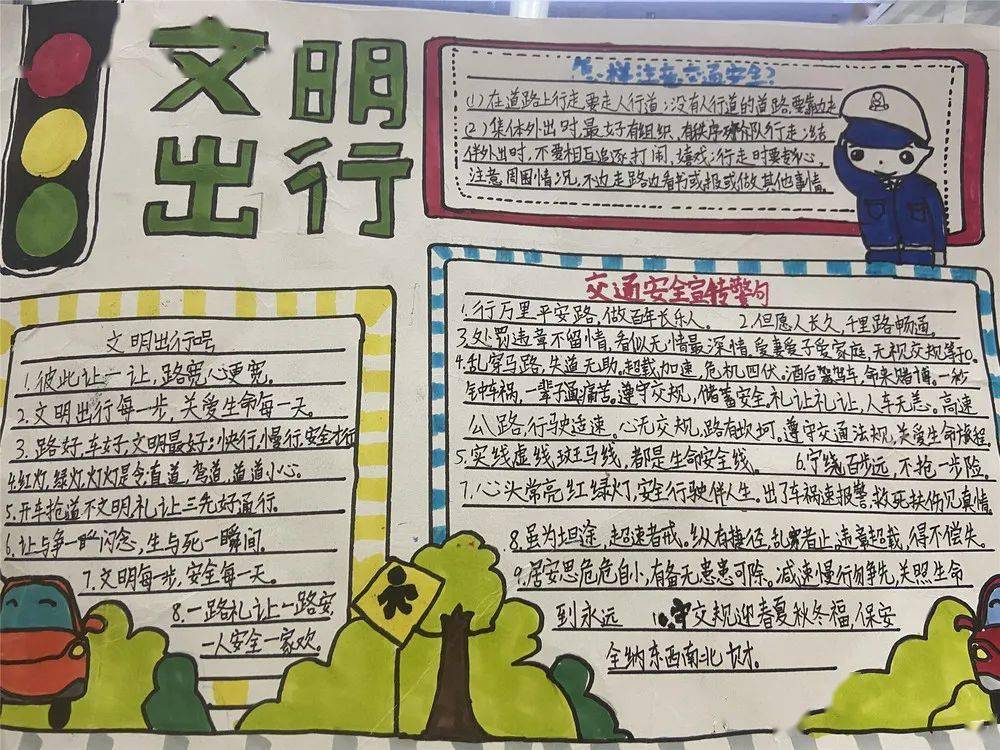 文明
出行
怎样注意交通安全?
(1)在道路上行走,要走人行道;没有人行道的道路,要靠边走
(2)集体外出时,最好有组织、有秩序列队行走;结
伴外出时,不要相互追逐、打闹、嬉戏;行走时要专心,
注意周围情况,不边走路边看书或报或做其他事情。
文明出行号
1.彼此让一让,路宽心更宽。
2.文明出行每一步,关爱生命每一天。
3.路好,车好,文明最好;快行,慢行,安全
4.红灯,绿灯,灯灯是令;直道,弯道,道道小心。
5.开车抢道不文明礼让三先好通行。
6.让与争一 闪念,生与死一瞬间。
7.文明每一步,安全每一天。
8.一路礼让一路安,
一人安全一家欢。
交通安全宣传警句
1.行万里平安路,做百年长乐人。 2.但愿人长久,千里路畅通。
3.处罚违章不留情,看似无情最深情。爱妻爱子爱家庭,无视交规等于0。
4.乱穿马路,失道无助。超载加速,危机四伏。酒后驾车,命来赌博。一秒
钟车祸,一辈子痛苦。遵守交规,储蓄安全。礼让礼让,人车无恙。高速
公路,行驶适速。心无交规,路有坎坷。遵守交通法规,关爱生命旅程。
5.实线虚线斑马线,都是生命安全线。 6.宁绕百步远,不抢一步险。
7.心头常亮红绿灯,安全行驶伴人生。出了车祸速报警,救死扶伤见真情。
8.虽为坦途,超速者戒。纵有捷径,乱穿者止。违章超载,得不偿失。
9.居安思危危自小,有备无患患可除。减速慢行勿争先,关照生命
到永远 10.守交规迎春夏秋冬福,保安
全纳东西南北财。